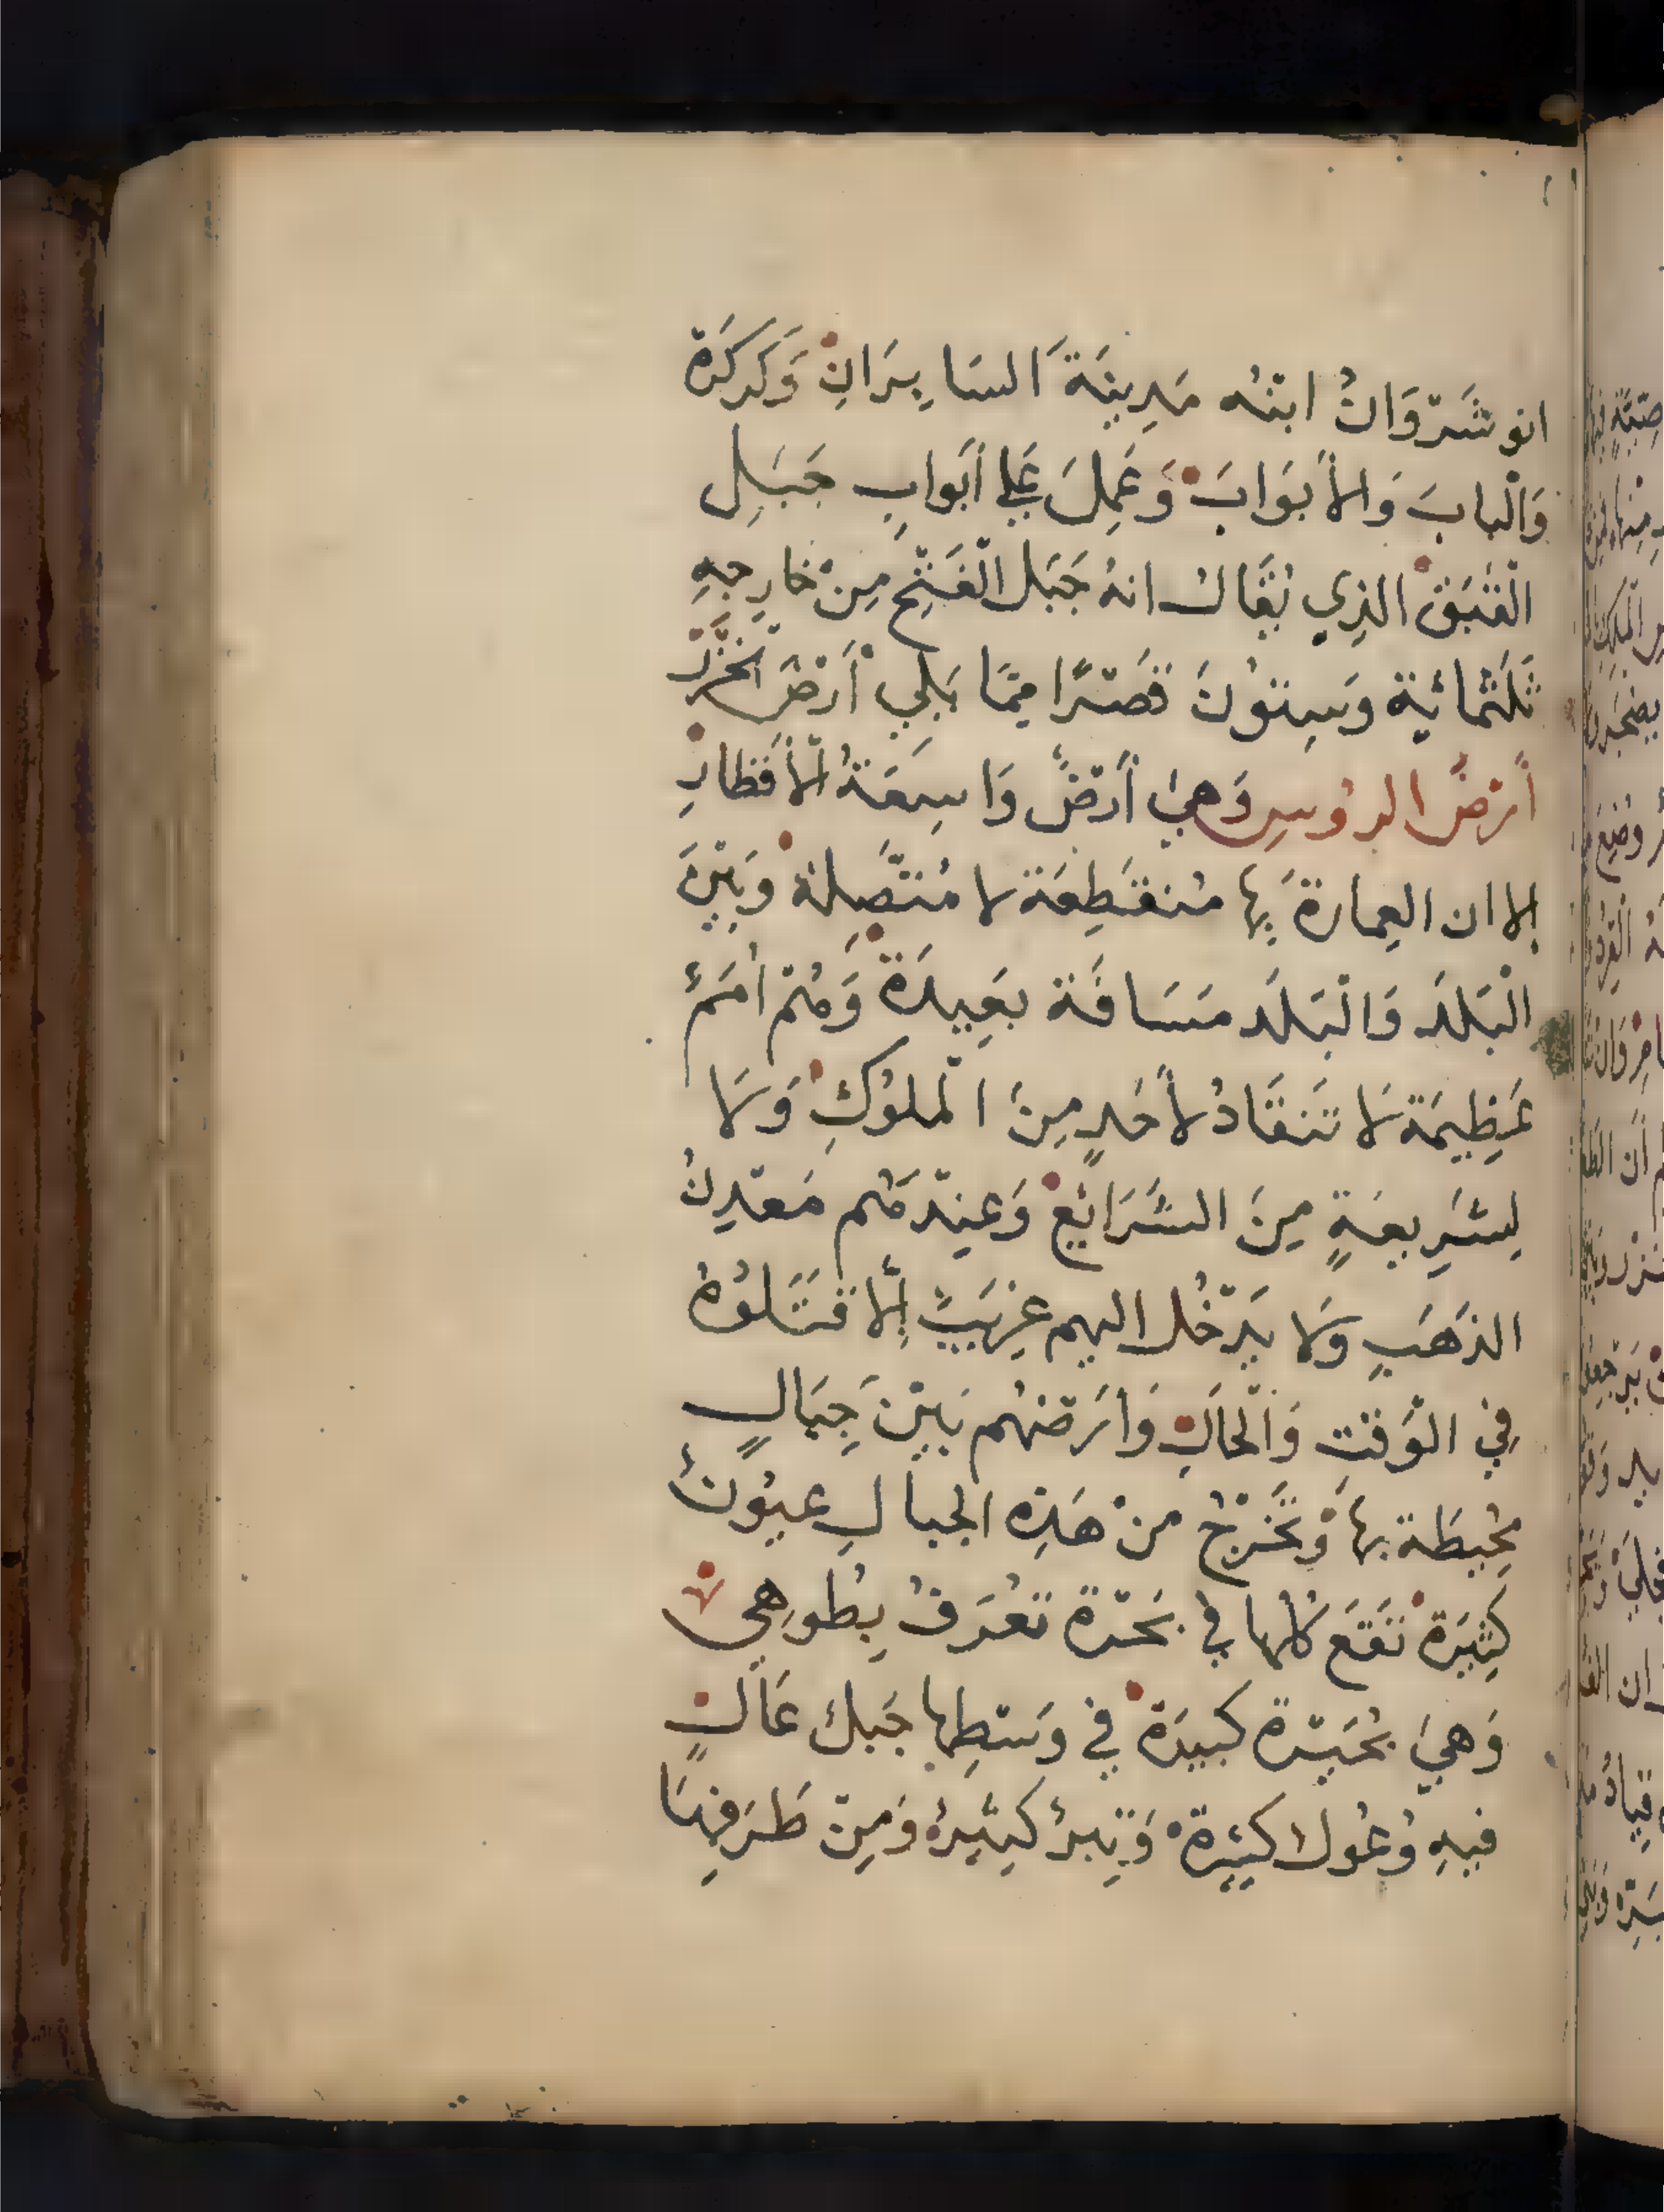 انوشَرْوَانُ ابنُه مَدِينَةَ السَابِرَانِ وَكَركَرَة
وَالْبابَ وَالأبوَابَ وَعَمِلَ عَلى أبوابِ جَبَلِ
الْقَبَقِ الذِي يُقَالُ انهُ جَبَل الْفَتْحِ مِنْ خَارِجِهِ
ثَلَثمائِة وَسِتونَ قَصْرًا مِمَّا يَلِي أَرْضَ الخَزَر
أَرضُ الروُسِ وَهِيَ أَرْضٌ وَاسِعَةُ الْأَقطَارِ
إلا ان العِمارةَ بِهَا مُنقَطِعَة لا مُتَّصِلة وَبَيْنَ
الْبَلَد وَالْبَلَد مَسَافَة بعَيِدَة وَهُمْ اُمَمٌ
عَظِيمَة لَا تَنقَادُ لأحَدٍ مِنَ الْملوُكِ وَلَا
لِشَرِيعَةٍ مِنَ الشَرَائِعِ وَعِنْدهُم مَعْدِنُ
الذَهَبِ وَلَا يَدْخُل اليهم غرِيَبٌ إلَّا قَتَلوُهُ
فِي الْوَقتِ وَالْحَالِ وَارَضهُم بَيْنَ جِبَالٍ
مُحِيطَة بهَا وَتَخْرُجُ منْ هَذِه الجبالِ عيوُنٌ
كثِيَرة تَقَعَ كُلها في بَحْرَة تعُرَفُ بِطُوهِي
وَهِيَ بُحَيْرة كبيِرَة في وَسَطِها جَبلٌ عَالٍ
فيهِ وُعُولٌ كثيِرة وَبِبرٌ كثيِرٌ وَمِنْ طَرَفِهَا